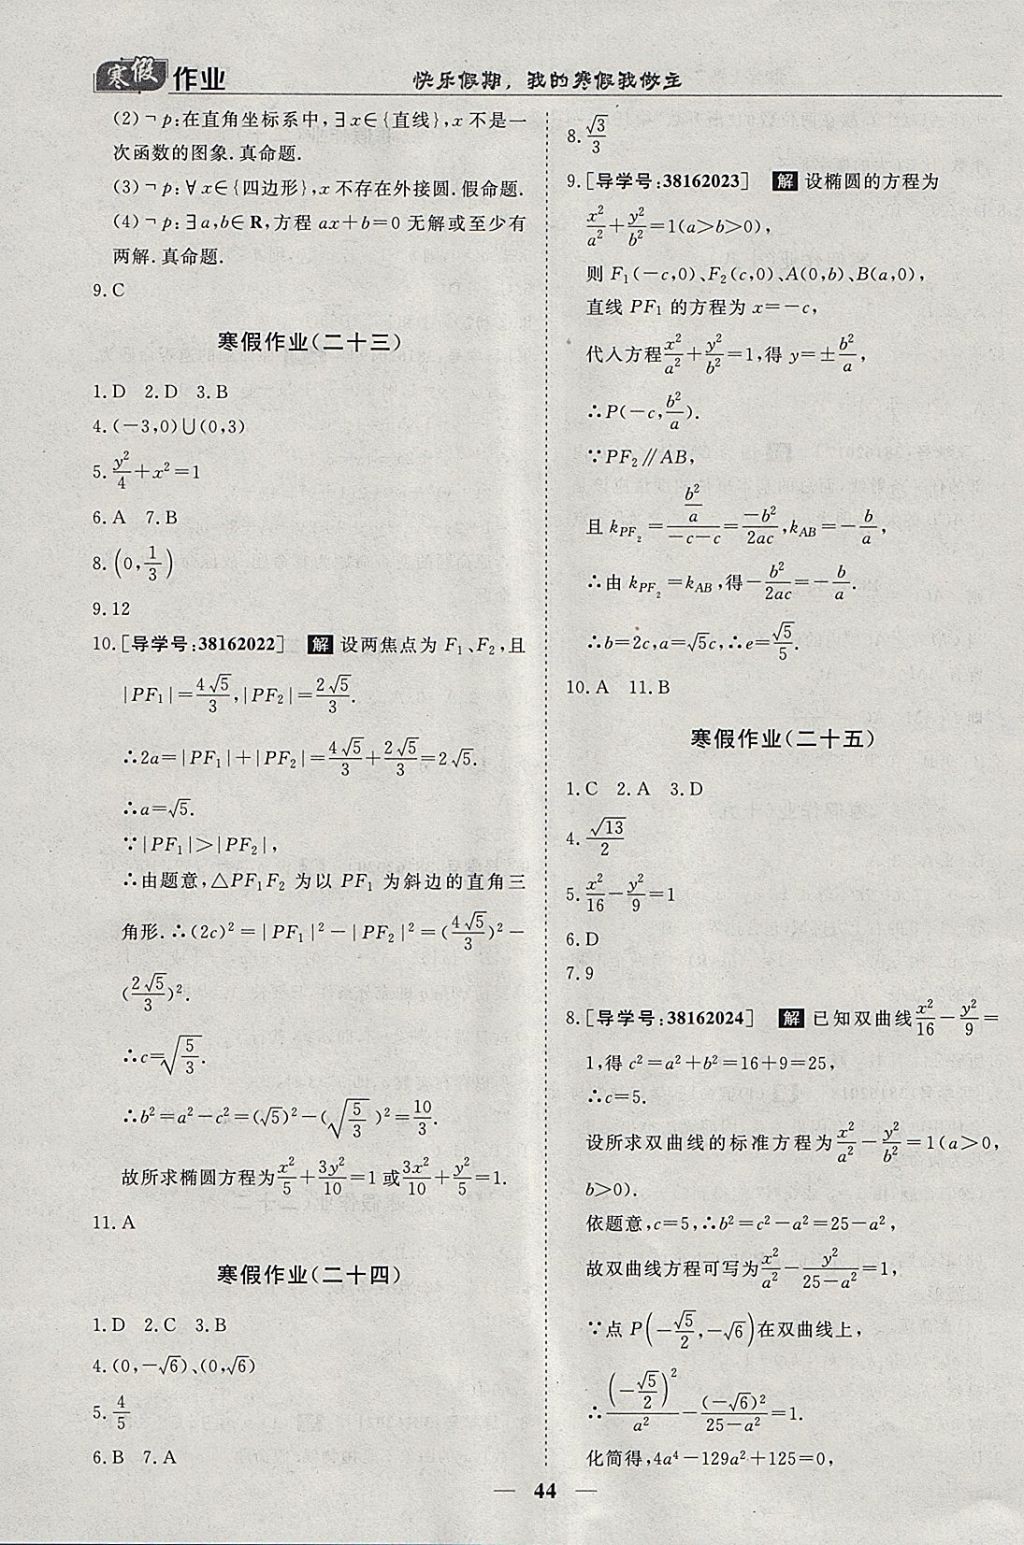 寒假作业 快乐假期，我的寒假我做主
(2)¬p:在直角坐标系中,∃x∈{直线},x不是一
次函数的图象.真命题.
(3)¬p:∀x∈{四边形},x不存在外接圆.假命题.
(4)¬p:∃a,b∈R,方程ax+b=0无解或至少有
两解.真命题.
9.C
寒假作业(二十三)
1.D 2.D 3.B
4.(-3,0)∪(0,3)
5.y²/4+x²=1
6.A 7.B
8.(0,1/3)
9.12
10.[导学号:38162022] 解 设两焦点为F₁、F₂,且
|PF₁|=4√5/3,|PF₂|=2√5/3.
∴2a=|PF₁|+|PF₂|=4√5/3+2√5/3=2√5.
∴a=√5.
∵|PF₁|>|PF₂|,
∴由题意,△PF₁F₂为以PF₁为斜边的直角三
角形.∴(2c)²=|PF₁|²-|PF₂|²=(4√5/3)²-
(2√5/3)².
∴c=√(5/3).
∴b²=a²-c²=(√5)²-(√(5/3))²=10/3.
故所求椭圆方程为x²/5+3y²/10=1或3x²/10+y²/5=1.
11.A
寒假作业(二十四)
1.D 2.C 3.B
4.(0,-√6)、(0,√6)
5.4/5
6.B 7.A
8.√3/3
9.[导学号:38162023] 解 设椭圆的方程为
x²/a²+y²/b²=1(a>b>0),
则F₁(-c,0)、F₂(c,0)、A(0,b)、B(a,0),
直线PF₁的方程为x=-c,
代入方程x²/a²+y²/b²=1,得y=±b²/a,
∴P(-c,b²/a).
∵PF₂∥AB,
且k_PF₂=(b²/a)/(-c-c)=-b²/2ac,k_AB=-b/a,
∴由k_PF₂=k_AB,得-b²/2ac=-b/a.
∴b=2c,a=√5c,∴e=√5/5.
10.A 11.B
寒假作业(二十五)
1.C 2.A 3.D
4.√13/2
5.x²/16-y²/9=1
6.D
7.9
8.[导学号:38162024] 解 已知双曲线x²/16-y²/9=
1,得c²=a²+b²=16+9=25,
∴c=5.
设所求双曲线的标准方程为x²/a²-y²/b²=1(a>0,
b>0).
依题意,c=5,∴b²=c²-a²=25-a²,
故双曲线方程可写为x²/a²-y²/(25-a²)=1,
∵点P(-√5/2,-√6)在双曲线上,
∴(-√5/2)²/a²-(-√6)²/(25-a²)=1.
化简得,4a⁴-129a²+125=0,
44